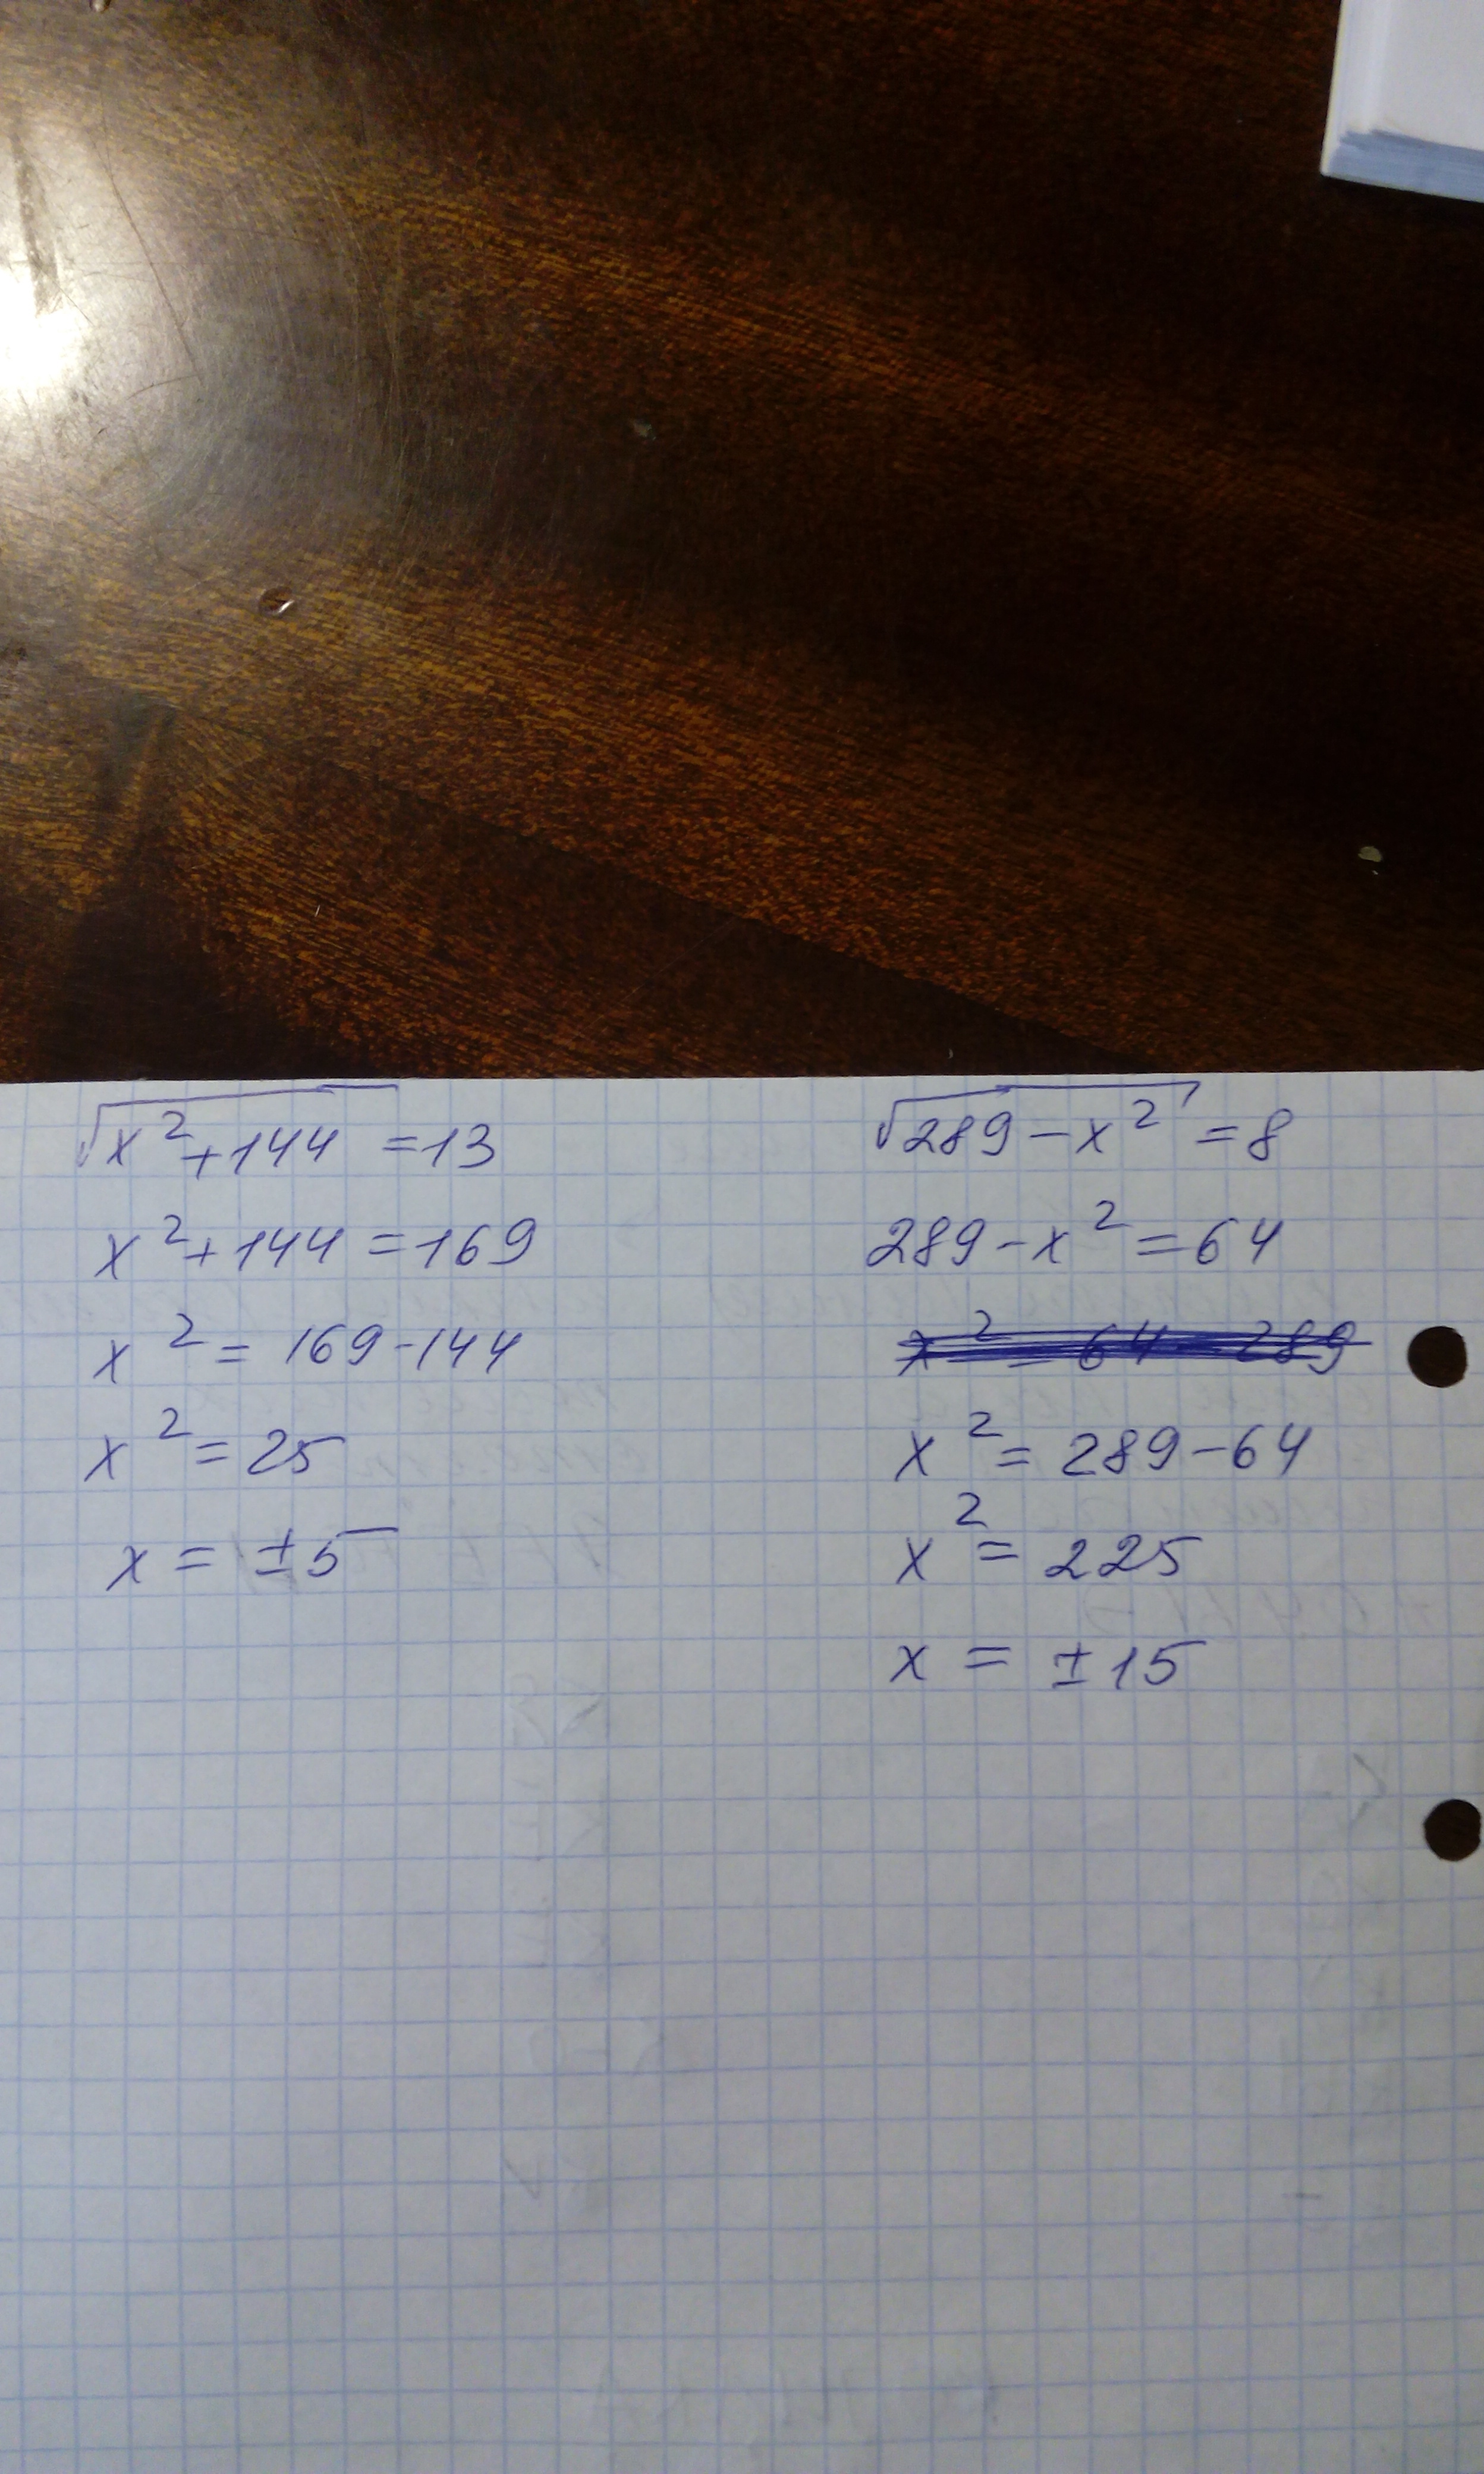 √x²+144 = 13
x²+144 = 169
x² = 169-144
x² = 25
x = ±5
√289-x² = 8
289-x² = 64
x² = 64 - 289
x² = 289-64
x² = 225
x = ±15